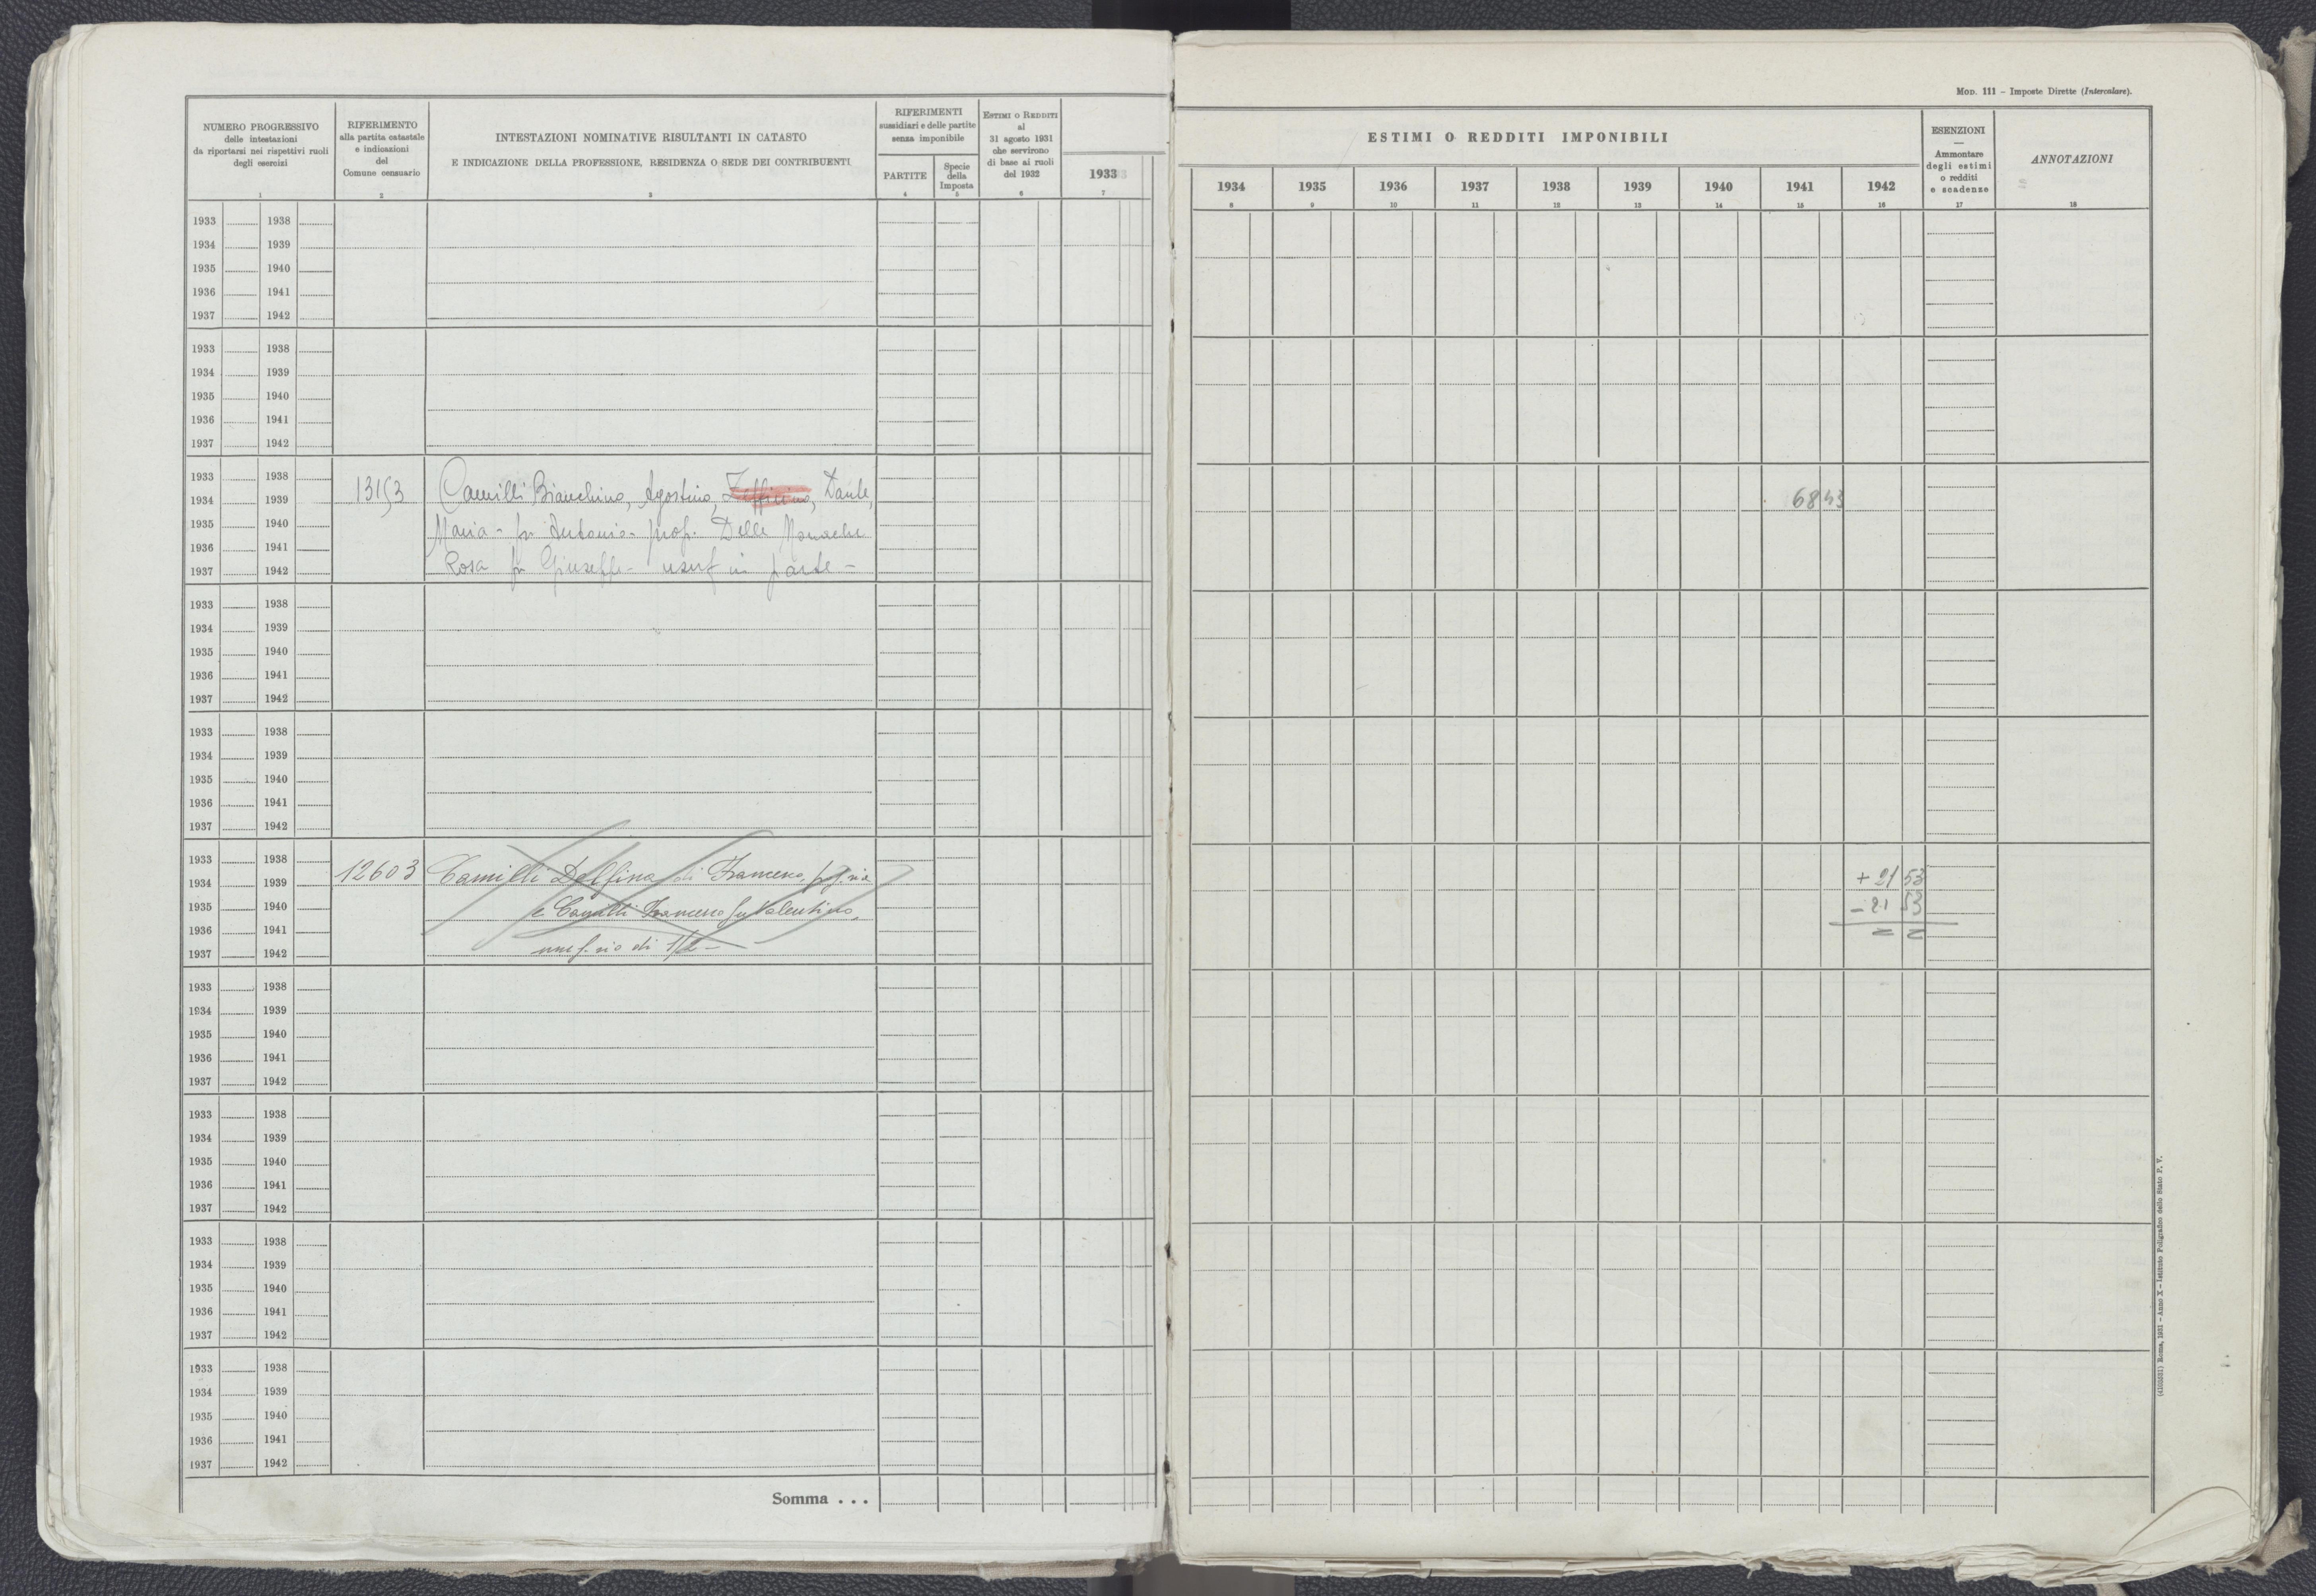 MOD. 111 - Imposte Dirette (Intercalare).
NUMERO PROGRESSIVO
delle intestazioni
da riportarsi nei rispettivi ruoli
degli esercizi
1
RIFERIMENTO
alla partita catastale
e indicazioni
del
Comune censuario
2
INTESTAZIONI NOMINATIVE RISULTANTI IN CATASTO
E INDICAZIONE DELLA PROFESSIONE, RESIDENZA O SEDE DEI CONTRIBUENTI
3
RIFERIMENTI
sussidiari e delle partite
senza imponibile
PARTITE
4
Specie
della
Imposta
5
ESTIMI O REDDITI
al
31 agosto 1931
che servirono
di base ai ruoli
del 1932
6
ESTIMI O REDDITI IMPONIBILI
1933 1934 1935 1936 1937 1938 1939 1940 1941 1942
7 8 9 10 11 12 13 14 15 16
ESENZIONI
—
Ammontare
degli estimi
o redditi
e scadenze
17
ANNOTAZIONI
18
1933 1938
1934 1939
1935 1940
1936 1941
1937 1942
1933 1938
1934 1939
1935 1940
1936 1941
1937 1942
1933 1938
1934 1939 13153 Camilli Bianchina, Agostino, Zeffirino, Dante, 68 43
1935 1940 Maria - fu Antonio - prop. Delle Monache
1936 1941
1937 1942 Rosa fu Giuseppe - usuf in parte -
1933 1938
1934 1939
1935 1940
1936 1941
1937 1942
1933 1938
1934 1939
1935 1940
1936 1941
1937 1942
1933 1938
1934 1939 12603 Camilli Delfina di Francesco, + 21 53
1935 1940 e Camilli Francesco fu Valentino, - 21 53
1936 1941 = =
1937 1942 di 1/2 -
1933 1938
1934 1939
1935 1940
1936 1941
1937 1942
1933 1938
1934 1939
1935 1940
1936 1941
1937 1942
1933 1938
1934 1939
1935 1940
1936 1941
1937 1942
1933 1938
1934 1939
1935 1940
1936 1941
1937 1942
Somma . . .
Roma, 1931 - Anno X - Istituto Poligrafico dello Stato P. V.